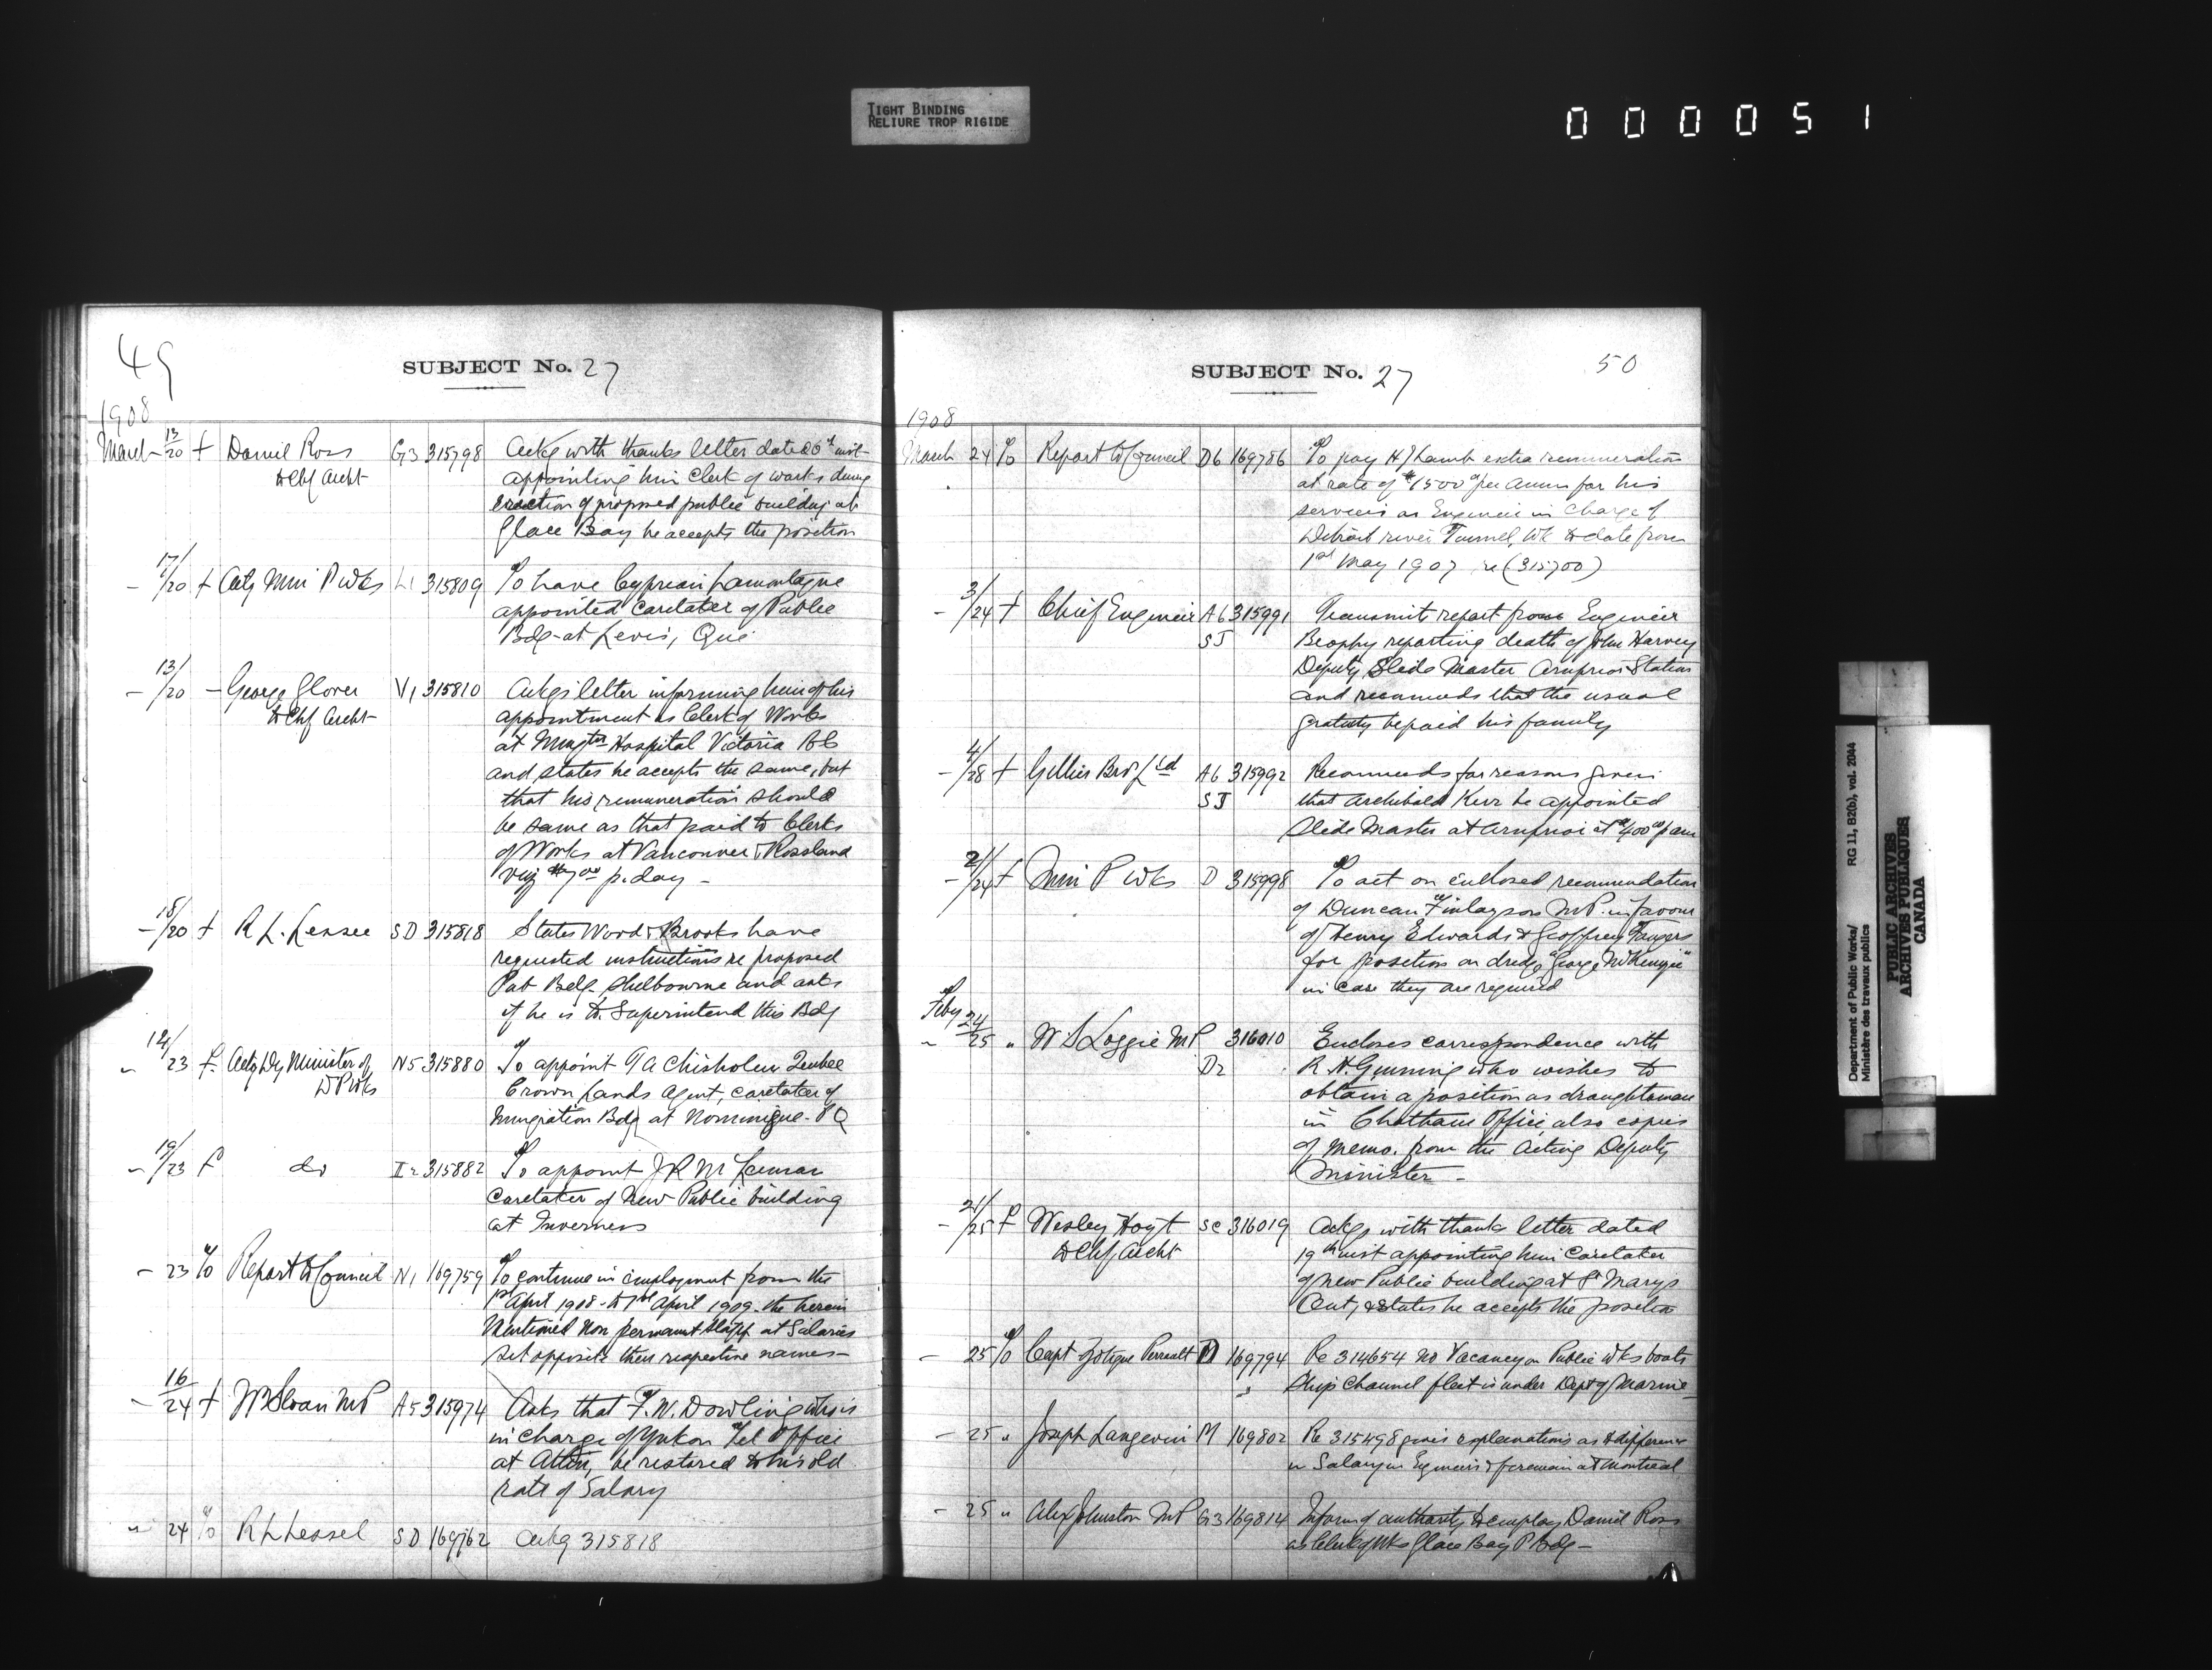 TIGHT BINDING
RELIURE TROP RIGIDE
000051
49
SUBJECT No. 27
1908
March 13/20 f Daniel Ross G3 315798 Ackg with thanks letter dated 6th inst
to Chf Archt appointing him Clerk of works during
erection of proposed public building at
Glace Bay he accepts the position
- 17/20 f Actg Min P Wks L1 315809 To have Cyprian Lamontagne
appointed Caretaker of Public
Bdg at Levis, Que
- 13/20 - George Glover V1 315810 Ackgs letter informing him of his
to Chf Archt appointment as Clerk of Works
at Hospital Victoria BC
and states he accepts the same, but
that his remuneration should
be same as that paid to Clerks
of Works at Vancouver & Rossland
viz p. day -
- 18/20 f R L. SD 315818 States Wood & Brooks have
requested instructions re proposed
Pub Bdg Shelbourne and asks
if he is to Superintend this Bdg
" 14/23 f. Actg Dy Minister of N5 315880 To appoint Chisholm Quebec
D P Wks Crown Lands Agent, caretaker of
Immigration Bdg at Nominigue - P Q
- 19/23 f do I2 315882 To appoint J R McLennan
Caretaker of New Public building
at Inverness
- 23 To Report to Council N1 169759 To continue in employment from the
1st April 1908 to 1st April 1909 the herein
Mentioned Non permanent staff at Salaries
set opposite their respective names -
- 16/24 f W Sloan MP A5 315974 Asks that F. W. Dowling who is
in charge of Yukon Tel Office
at Atlin, be restored to his old
rate of Salary
" 24 To R L Lessel SD 169762 Ackg 315818
SUBJECT No. 27
50
1908
March 24 To Report to Council D6 169786 To pay H J Lamb extra remuneration
at rate of $1500 per Annum for his
services as Engineer in Charge of
Detroit river Tunnel, Wk to date from
1st May 1907 re (315700)
- 3/24 f Chief Engineer A6 315991 Transmits report from Engineer
SJ Brophy reporting death of John Harvey
Deputy Slide Master Arnprior Station
and recommends that the usual
gratuity be paid his family
- 4/28 f Gillies Bros Ltd A6 315992 Recommends for reasons given
SJ that Archibald Kerr be appointed
Slide Master at Arnprior at $400 p am
- 21/24 f Min P Wks D 315998 To act on enclosed recommendation
of Duncan Finlayson M P. in favour
of Henry Edwards & Geoffrey
for position on dredge "George McKenzie"
in Case they are required
Feby 24/25 " W S Loggie MP 316010 Encloses correspondence with
D2 R. H. who wishes to
obtain a position as draughtsman
in Chatham Office, also copies
of memo. from the Acting Deputy
Minister -
- 21/25 f Wesley Hoyt SC 316019 Ackgs with thanks letter dated
to Chf Archt 19th inst appointing him Caretaker
of new Public building at St Marys
Ont, & states he accepts the position
- 25 To Capt Zotique Perreault D 169794 Re 314654 no Vacancy on Public Wks boats
Ship Channel fleet is under Dept of Marine
- 25 " Joseph Langevin M 169802 Re 315498 gives explanations as to difference
in Salary in Engineers & foreman at Montreal
- 25 " Alex Johnston MP G3 169814 Informed authority to employ Daniel Ross
as Clerk of Wks Glace Bay P Bdg -
Department of Public Works/
Ministère des travaux publics
RG 11, B2(b), vol. 2044
PUBLIC ARCHIVES
ARCHIVES PUBLIQUES
CANADA